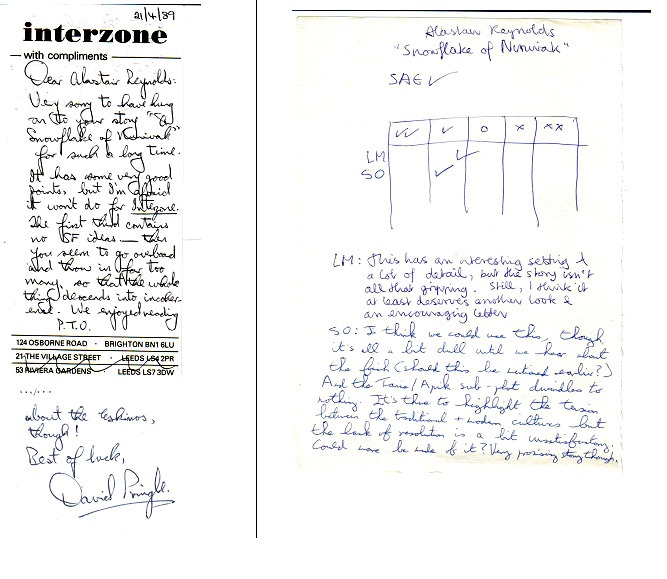 21/4/89
interzone
with compliments
Dear Alastair Reynolds:
Very sorry to have hung
on to your story "A
Snowflake of Nunivak"
for such a long time.
It has some very good
points, but I'm afraid
it won't do for Interzone.
The first third contains
no SF ideas — then
you seem to go overboad
and throw in far too
many, so that the whole
thing descends into incoher-
ence. We enjoyed reading
P.T.O.
124 OSBORNE ROAD · BRIGHTON BN1 6LU
21 THE VILLAGE STREET · LEEDS LS4 2PR
53 RIVIERA GARDENS LEEDS LS7 3DW
.../...
about the Eskimos,
though!
Best of luck,
David Pringle.
Alastair Reynolds
"Snowflake of Nunivak"
SAE ✓
✓✓ ✓ o x xx
LM ✓
SO ✓
LM: This has an interesting setting &
a lot of detail, but the story isn't
all that gripping. Still, I think it
at least deserves another look &
an encouraging letter
SO: I think we could use this, though
it's all a bit dull until we hear about
the (should this be earlier?)
And the sub-plot dwindles to
nothing. It's there to highlight the tension
between the traditional + modern cultures but
the lack of resolution is a bit unsatisfying.
Could more be made of it? Very promising story though.